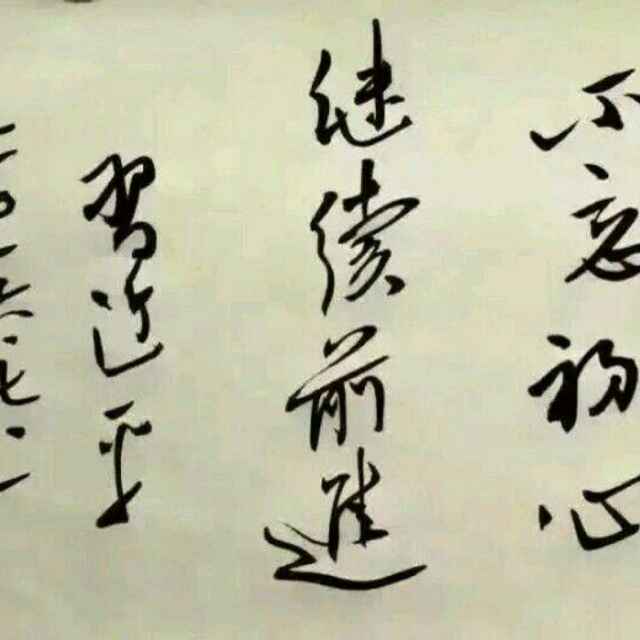 不忘初心
继续前进
习近平